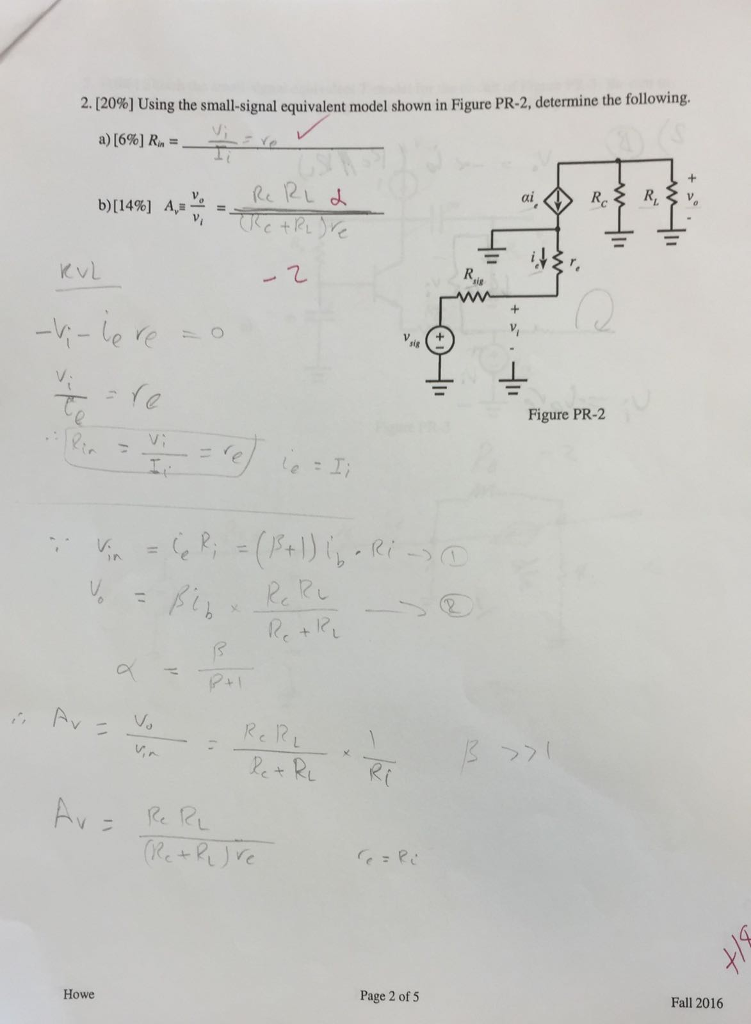 2. [20%] Using the small-signal equivalent model shown in Figure PR-2, determine the following.
a) [6%] R_in = V_i / I_i = r_e ✓
b) [14%] A_v ≡ v_o / v_i = R_C R_L α / (R_C + R_L) r_e
-2
αi_e
R_C
R_L
+
v_o
-
i_e
r_e
R_sig
+
v_i
-
v_sig
+
-
Figure PR-2
KVL
-V_i - i_e r_e = 0
V_i / i_e = r_e
∴ R_in = V_i / I_i = r_e
i_e = I_i
∵ V_in = i_e R_i = (β+1) i_b · R_i → ①
V_o = β i_b × R_C R_L / R_C + R_L → ②
α = β / β+1
∴ A_v = V_o / V_in = R_C R_L / R_C + R_L × 1 / R_i
β >> 1
A_v = R_C R_L / (R_C + R_L) r_e
r_e = R_i
Howe
Page 2 of 5
Fall 2016